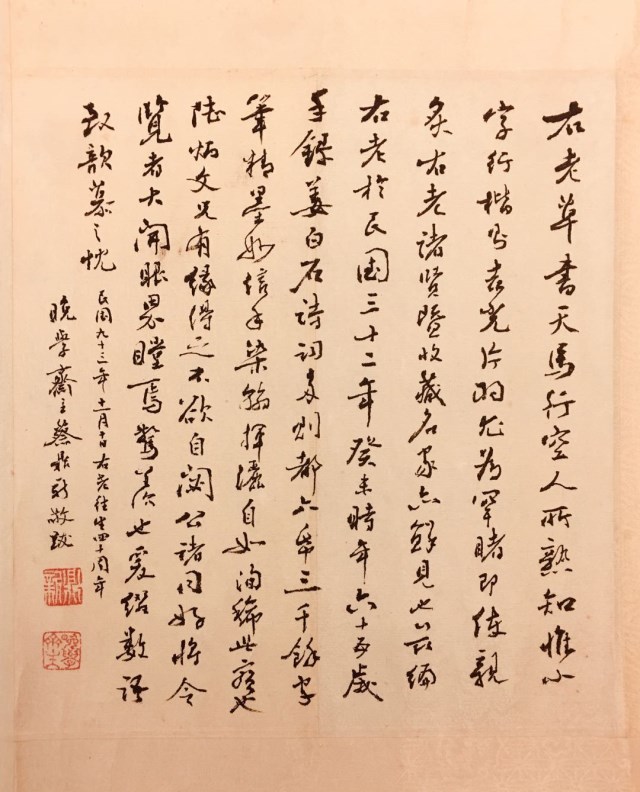 右老草書天馬行空人所熟知惟小
字行楷則吉光片羽尤為罕睹即使親
炙右老諸賢暨收藏名家亦鮮見也此冊
右老於民國三十二年癸未時年六十五歲
手錄姜白石詩詞多則都六帋三千餘字
筆精墨妙信手染翰揮灑自如洵稀世寶也
陸炳文兄有緣得之不欲自閟公諸同好將令
覽者大開眼界瞠焉驚羨也爰綴數語
致歆慕之忱
民國九十三年十一月十日右老往生四十周年
晚學齋主蔡鼎新敬跋
鼎新